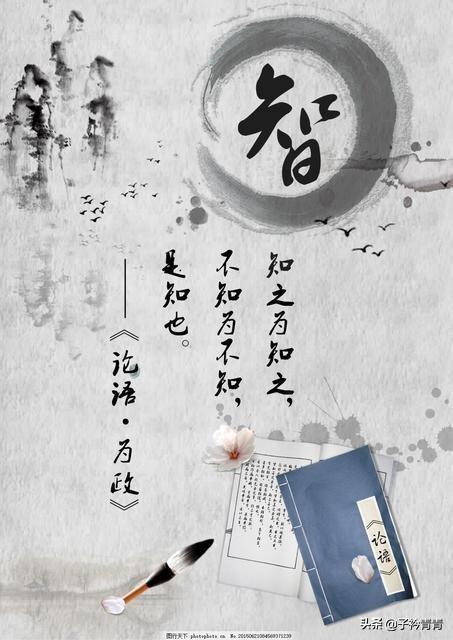 智
知之为知之，
不知为不知，
是知也。
——《论语·为政》
《论语》
图行天下 photophoto.cn No.20150621084569371239
头条 @子衿青青